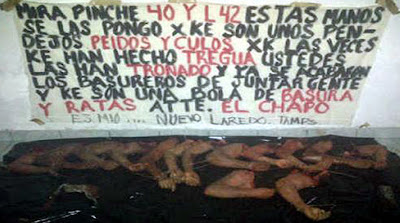 MIRA PINCHE 40 Y L 42 ESTAS MANOS
SE LAS PONGO X KE SON UNOS PEN-
DEJOS PEIDOS Y CULOS XK LAS VECES
KE HAN HECHO TREGUA USTEDES
LAS HAN TRONADO Y
LOS BASUREROS DE JUNTAR GENTE
Y KE SON UNA BOLA DE BASURA
Y RATAS ATTE. EL CHAPO
ES MIO .... NUEVO LAREDO. TAMPS.